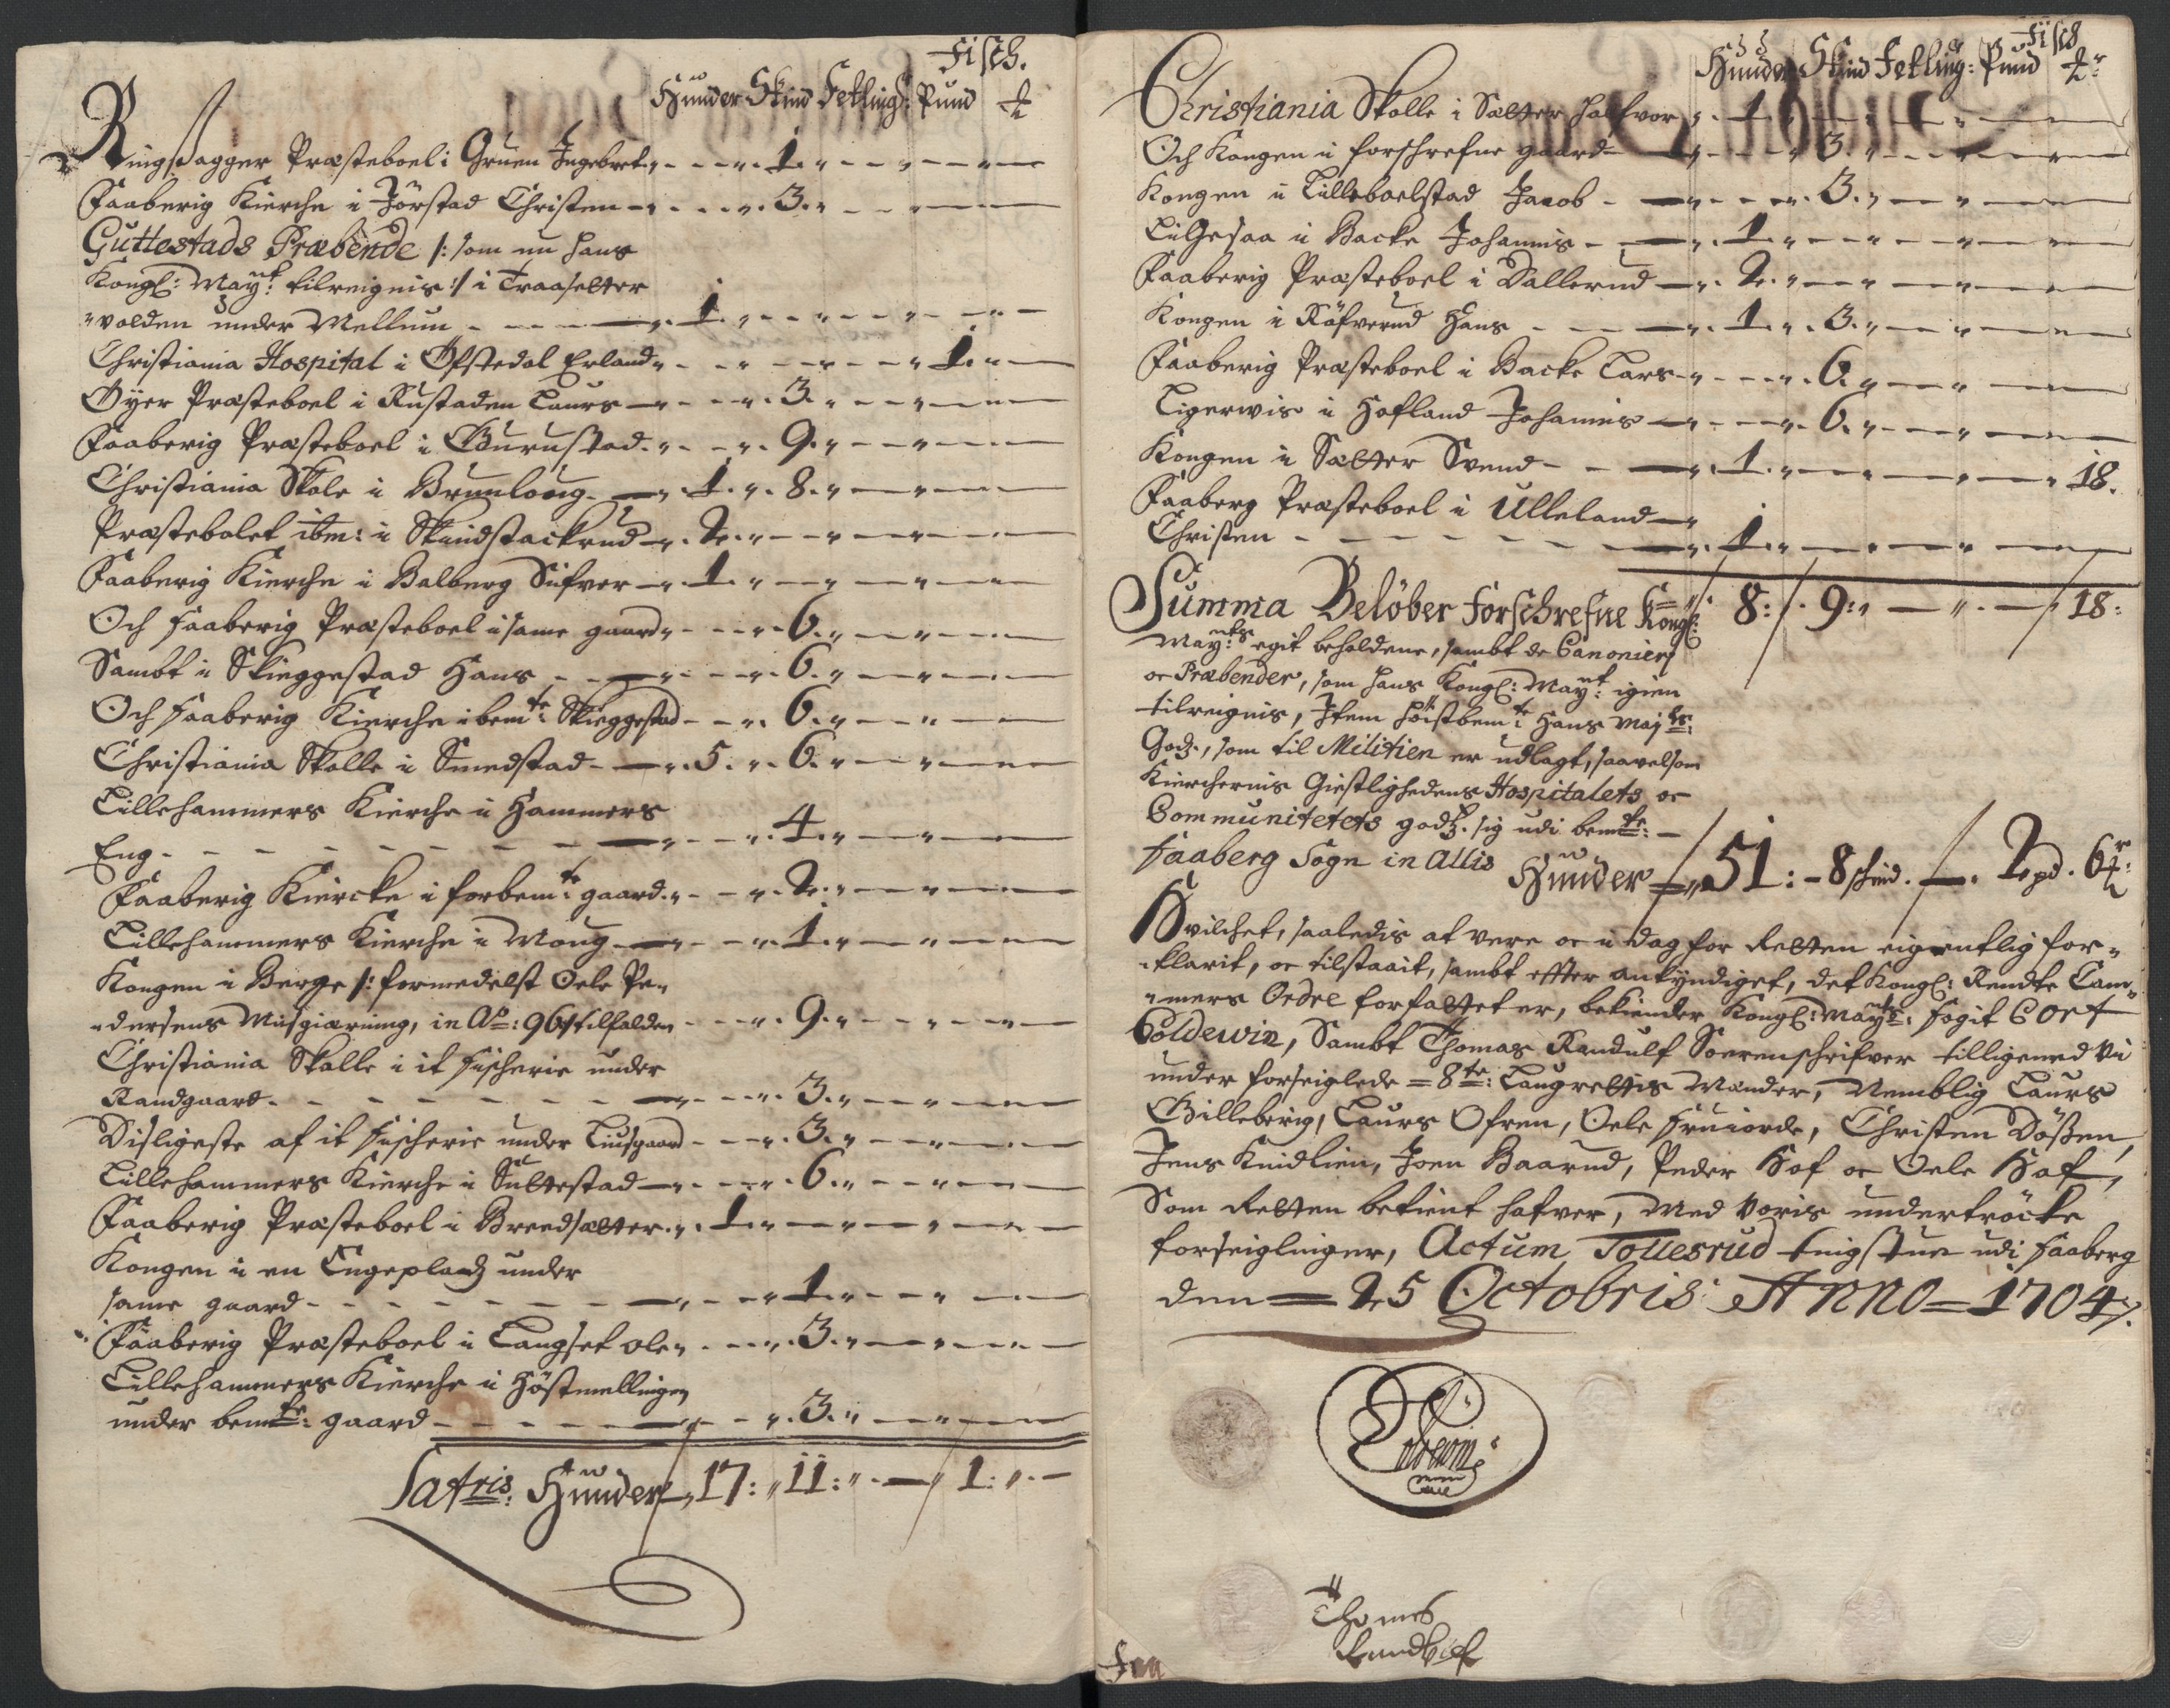 Fisch.
Hunder Skind Fetling: Pund ℔
Ringsagger Præsteboel i Gruen Ingebret „ - - - „. 1. „ - - „ - - „ -
Faaberig Kierche i Jörstad Christen - „ - - - „. 3. „ - - - „ - -
Guttestads Præbende /: som nu hans
Kongl: Mayt: tilreignis :/ i Traaselter
„volden under Mellum - - - - „. 1. „ - - „ - - „ - „ -
Christiania Hospital i Ofstedal Erland „ - - „ - - „ - - „ 1. „ -
Øyer Præsteboel i Rustaden Laurs - „ - - - „. 3. „ - - „ - -
Faaberig Præsteboel i Gurustad. „ - - „. 9. „ - - „ - -
Christiania Skole i Brunlaug - „. 1. „. 8. „ - „ - -
Præstebolet ibm: i Skindstackrud - „. 2. „ - - „ - - „ - -
Faaberig Kierche i Balberg Siufver - „. 1. „ - „ - „ - -
Och Faaberig Præsteboel i same gaard „ - - - „. 6. „ - - „ - -
Sambt i Skieggestad Hans - - „ - - „. 6. „ - - „ - -
Och Faaberig Kierche i bemte: Skieggestad - - „. 6. „ - - „ - -
Christiania Skolle i Smedstad - „. 5. „. 6. „ - - „ - -
Lillehammers Kierche i Hammers
Eng - - - - - - - „ - - „. 4. „ - - „ - -
Faaberig Kiercke i forbemte: gaard. „ - - „. 2. „ - - „ - -
Lillehammers Kierche i Moug - „ - - „. 1. „ - - „ - -
Kongen i Berge /: formedelst Oele Pe„
„dersens Misgierning, in Ao: 96 tilfalden - - - „. 9. „ - - „ - -
Christiania Skolle i it Fischerie under
Randgaard. - - - - - - „ - - „. 3. „ - - „ - -
Disligeste af it Fischerie under Liusgaard - - - „. 3. „ - - „ - -
Lillehammers Kierche i Sultestad - „ - - - „. 6. „ - - „ - -
Faaberig Præsteboel i Breedsætter. „. 1. „ - - „ - - „ - -
Kongen i en Engeplads under
same gaard - - - - - - „ - - „ 1. „ - - „ - -
Faaberig Præsteboel i Langset Ole „. - - - „. 3. „ - - „ - -
Lillehammers Kierche i Höstmellingen
under bemte: gaard - - - - - „ - - „. 3. „ - - „ - -
Latris: Hunder - „ 17: „ 11: „. - „ 1: „. -
Fisch
Hunder Skind Fetling: Pund ℔r
Christiania Skolle i Sætter Halfvor „. 1. „ - - „ - - „ - -
Och Kongen i forschrefne gaard - „ - - „. 3. „ - - „ - -
Kongen i Lilleboelstad Jacob - „ - - „. 3. „ - - „ - -
Lilhesaa i Backe Johannis - - „. 1. „ - - „ - - „ - -
Faaberig Præsteboel i Dallerud - „. 2. „ - - „ - - „ - -
Kongen i Röfverud Hans - - - „. 1. „. 3. „ - „ - -
Faaberig Præsteboel i Backe Lars - „ - - - „. 6. „ - - „ - -
Ligerwis i Hofland Johannis - „ - - - „. 6. „ - - „ - -
Kongen i Sætter Svend - - „. 1. „ - - „ - - „ - „ 18.
Faaberg Præsteboel i Ulleland - „
Christen - - - - - „. 1. „ - - „ - - „ - -
Summa Belöber Forschrefne Kongl: „. 8: „. 9: „ - „. - „ 18:
Mayts: egit beholdene, sambt de Canonier
oc Præbender, som hans Kongl: Mayt: igien
tilreignis, Item höistbemte: Hans Majts:
Gods, som til Militien er udlagt, saavelsom
Kierchernis Giestlighedens Hospitalets oc
Communitetets gods. sig udi bemte: -
Faaberg Sogn in Allis Hunder = „ 51: - 8 schind. - . 2 pd. 6 ℔r:
Hvilchet, saaledis at vere oc i dag for Retten eigentlig for„
„klarit, oc tilstaait, sambt effter ankyndiget, det Kongl: Rendte Cam„
„mers Ordre forfattet er, bekiender Kongl: Mayts: Fogit Cort
Coldewin, Sambt Thomas Randulf Sorenschrifver tilligemed Vi
under forseiglede = 8te: Laugrettis Mænder, Nemblig Laurs
Gilleberg, Laurs Ofren, Oele Fruiorde, Christen Dößen,
Jens Knidlien, Joen Baarud, Peder Hof oc Oele Hof,
Som Retten betient hafver, Med Voris undertröckte
forseiglinger, Actum Tollesrud tingstue udi Faaberg
den = 25 Octobris Anno = 1704.
Coldewin
Thomes
Randulf
Faa